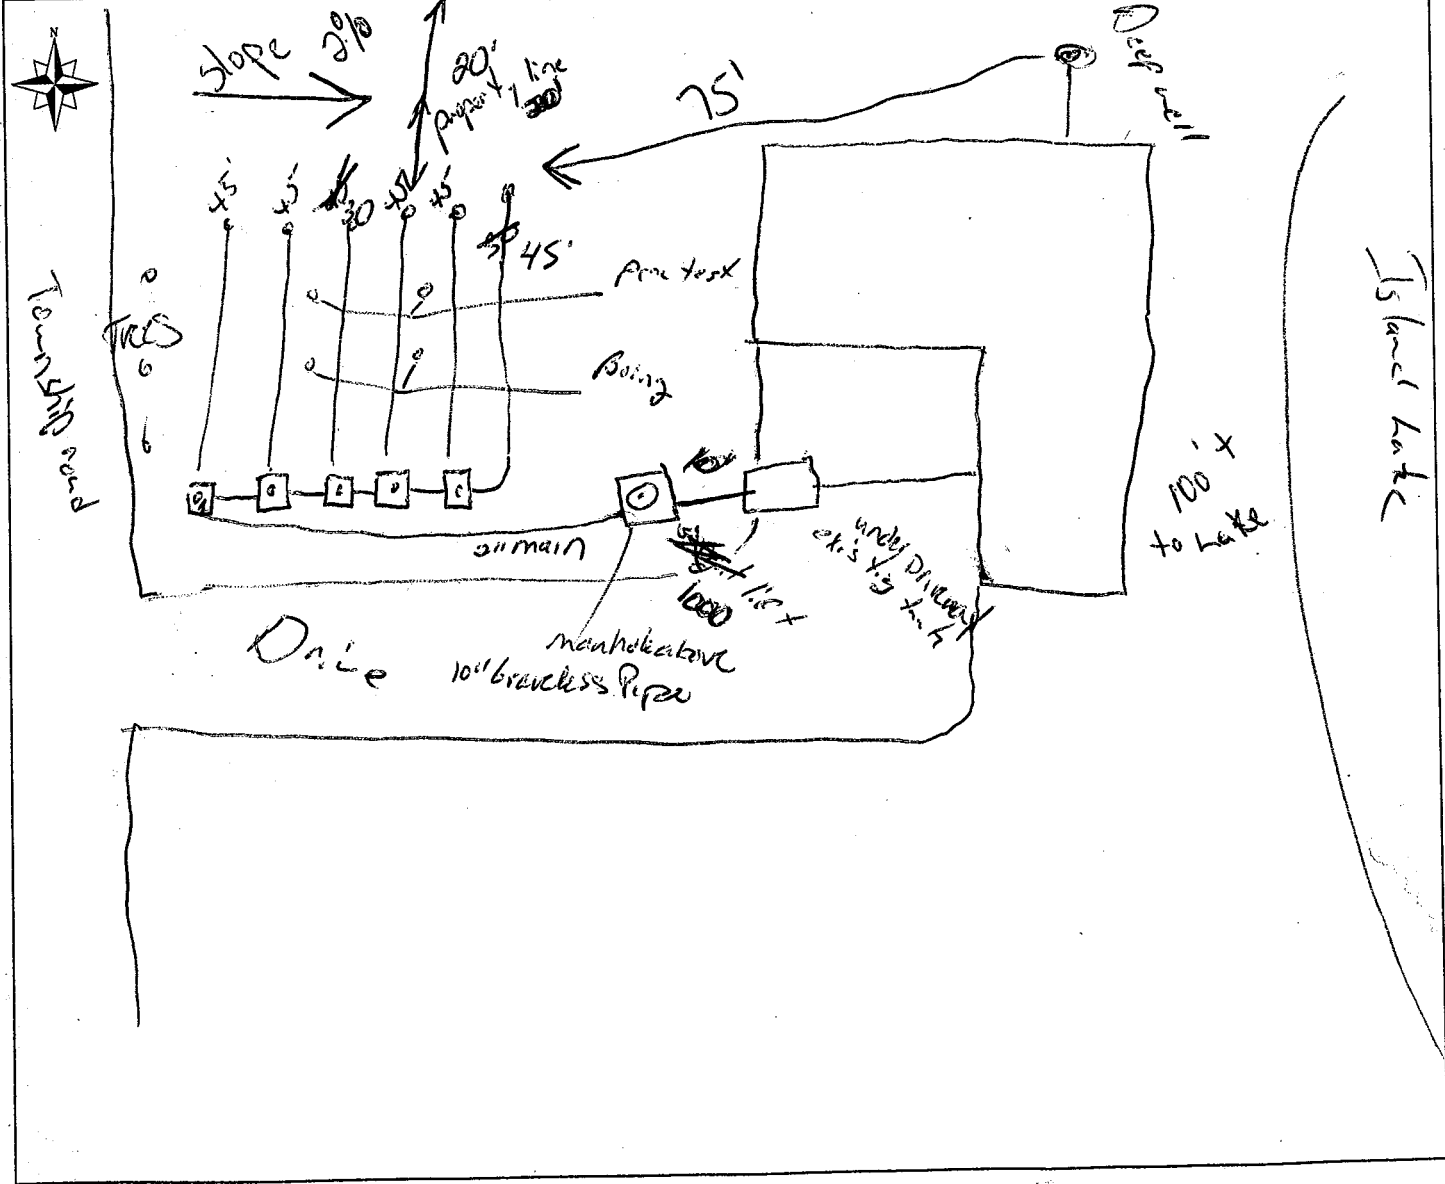 N
slope 2%
20'
property line
75'
Deep well
45'
45'
30
45'
45'
45'
perc test
Boing
Trees
Township road
Island Lake
100' +
to Lake
2" main
1000
lift
under Driveway
existig tank
Drive
manhole above
10" Graveless Pipe